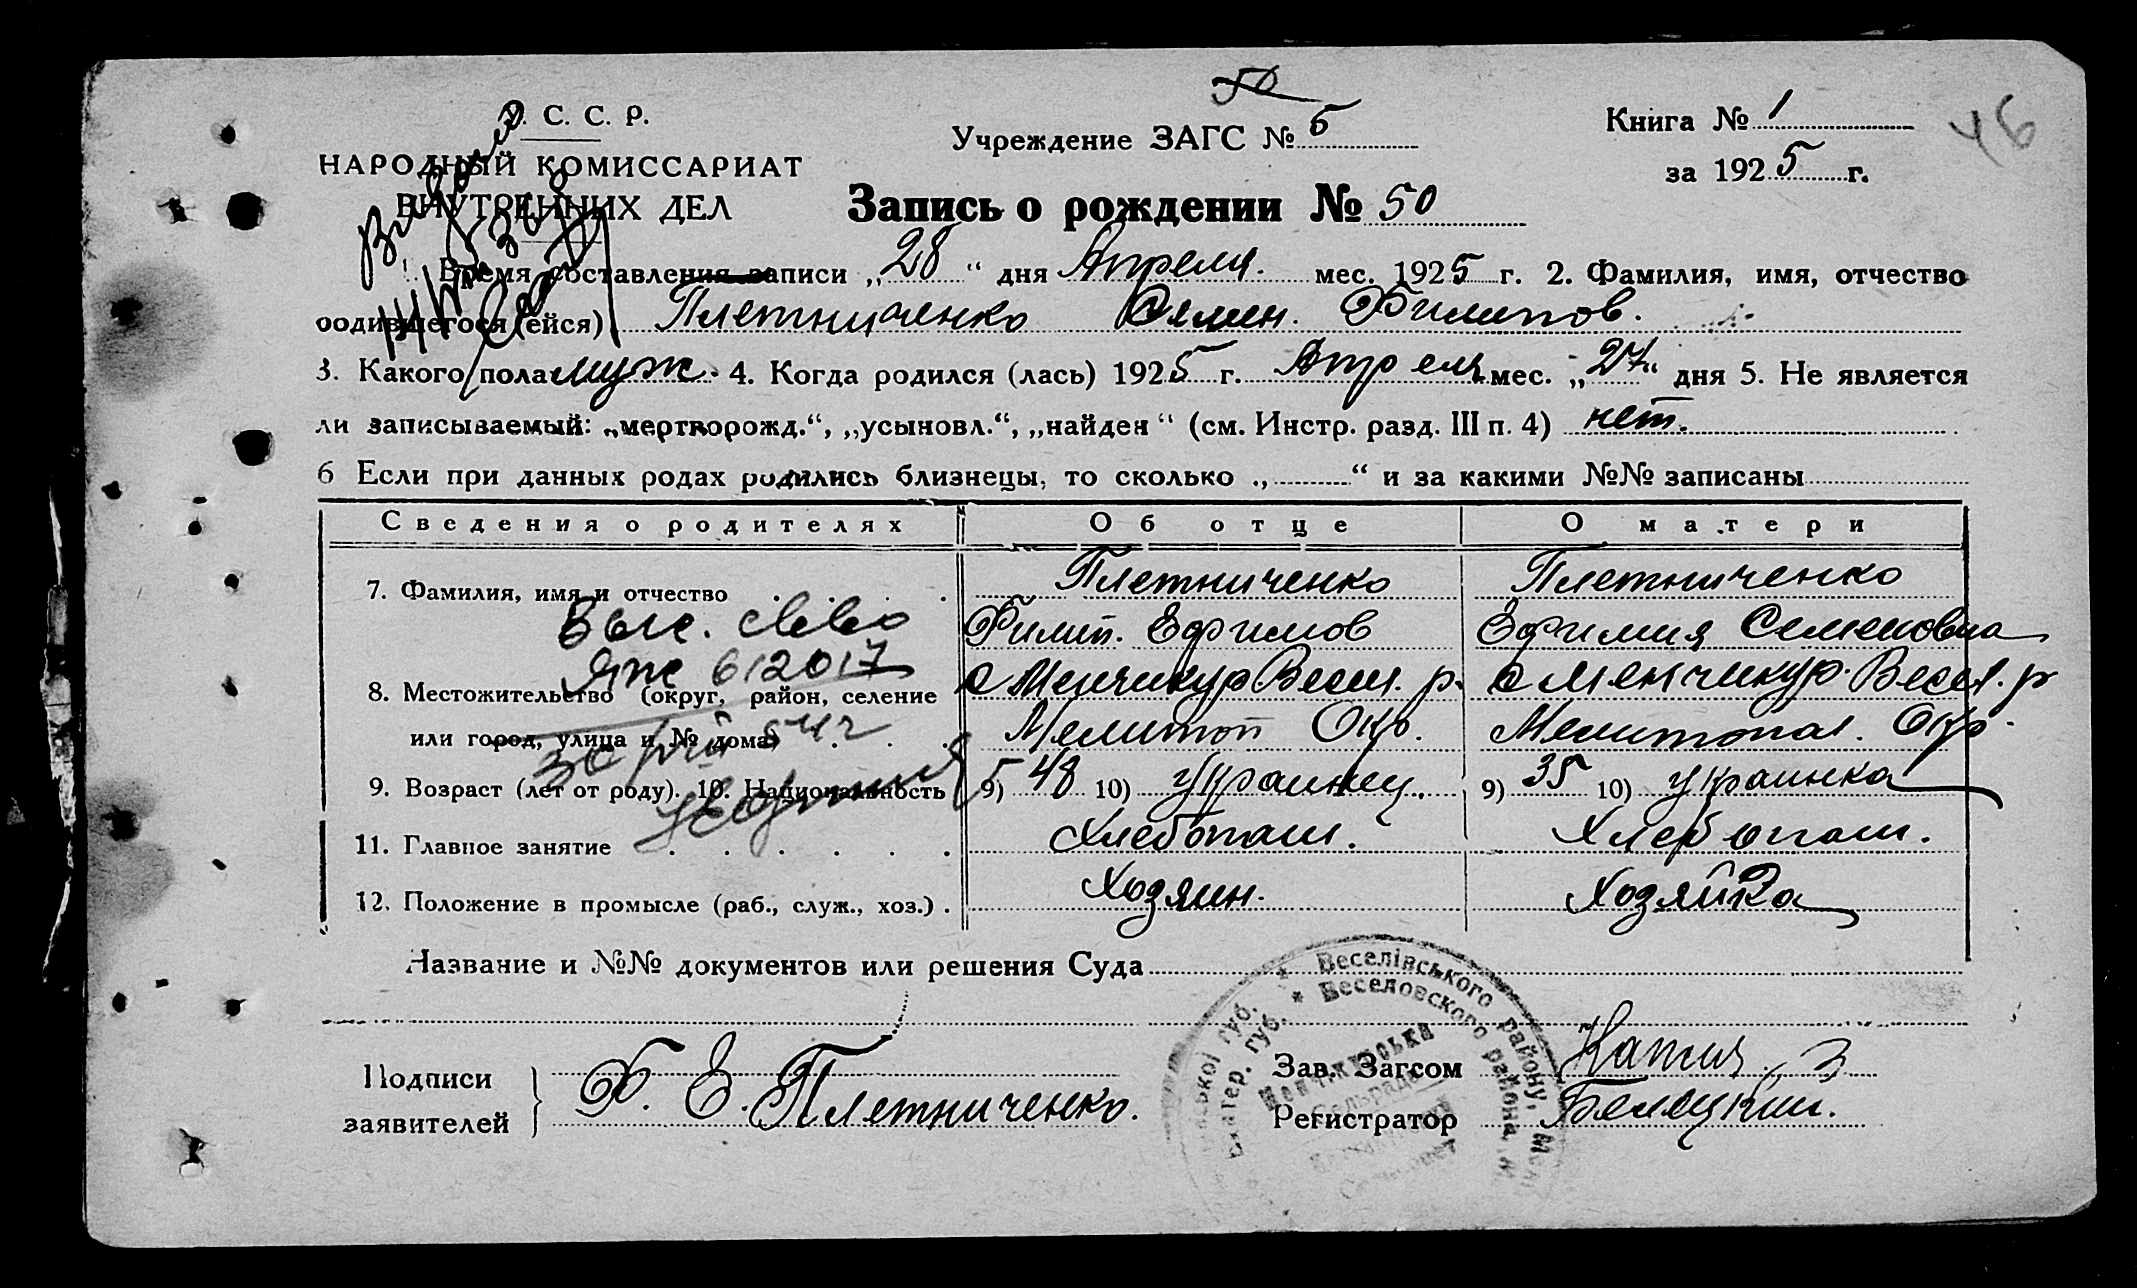 50
С. С. Р.
Учреждение ЗАГС № 5
Книга № 1
46
НАРОДНЫЙ КОМИССАРИАТ
за 1925 г.
ВНУТРЕННИХ ДЕЛ
Запись о рождении № 50
1. Время составления записи „28“ дня Апреля. мес. 1925 г. 2. Фамилия, имя, отчество
родившегося (ейся) Плетниченко Семен. Филипов.
3. Какого пола муж. 4. Когда родился (лась) 1925 г. Апреля мес. „27“ дня 5. Не является
ли записываемый: „мертворожд.“, „усыновл.“, „найден“ (см. Инстр. разд. III п. 4) нет.
6 Если при данных родах родились близнецы, то сколько „ “ и за какими №№ записаны
Сведения о родителях Об отце О матери
7. Фамилия, имя и отчество Плетниченко Плетниченко
Филип. Ефимов Ефимия Семеновна
612017
8. Местожительство (округ, район, селение с Менчикур Весел. р. с Менчикур. Весел. р
или город, улица и № дома) Мелитоп Окр. Мелитопол. Окр.
9. Возраст (лет от роду). 10. Национальность 9) 48 10) украинец. 9) 35 10) украинка
11. Главное занятие Хлебопаш. Хлебопаш.
12. Положение в промысле (раб., служ., хоз.) Хозяин. Хозяйка
Название и №№ документов или решения Суда
Веселівського району,
Веселовского района
губ.
Екатер. губ.
Подписи
заявителей
Ф. Е. Плетниченко.
Зав. Загсом
Регистратор Белецкий.